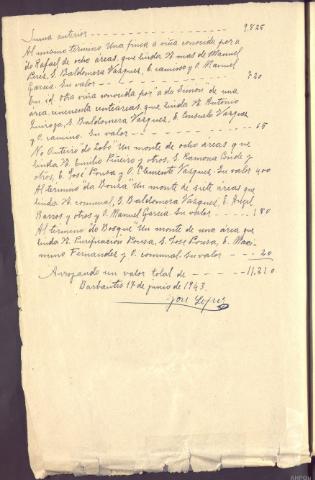 Suma anterior - - - - - - 9825
Al mismo termino Una finca a viña conocida por a
do Rafael de ocho áreas, que linda N. mas de Manuel
Pires, S. Baldomera Vazquez, E. camino y O. Manuel
Garcia. Su valor - - - - - - 720
En id. otra viña conocida por a de Simon de una
área, cincuenta centiareas, que linda N. Antonio
Quiroga, S. Baldomera Vazquez, E. Consuelo Vazquez
O. camino. Su valor - - - - - - 65
"No Outeiro do Lobo" Un monte de ocho areas y que
linda N. Emilio Piñeiro y otros, S. Ramona Conde y
otros, E. José Pousa y O. Clemente Vazquez. Su valor 400
Al termino "da Bouza" Un monte de siete áreas que
linda N. comunal, S. Baldomera Vazquez, E. Angel
Barros y otros y O. Manuel Garcia. Su valor - - - 180
Al termino de "Bosque" Un monte de una área que
linda N. Purificación Pousa, S. José Pousa, E. Maxi-
mino Fernandez y O. comunal. Su valor - - - 20
Arrojando un valor total de - - - - 11,210
Barbantes 14 de junio de 1943.
José